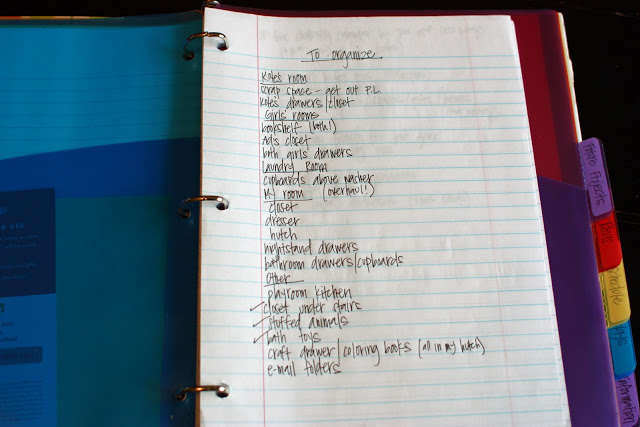 To organize
Kole's room
scrap space - get out P.L.
Kole's drawers/closet
Girls' rooms
bookshelf (both!)
Ad's closet
both girls' drawers
Laundry Room
cupboards above washer
My room (overhaul!)
closet
dresser
hutch
nightstand drawers
bathroom drawers/cupboards
Other
playroom kitchen
✓ closet under stairs
✓ stuffed animals
✓ bath toys
craft drawer/coloring books (all in my hutch)
e-mail folders